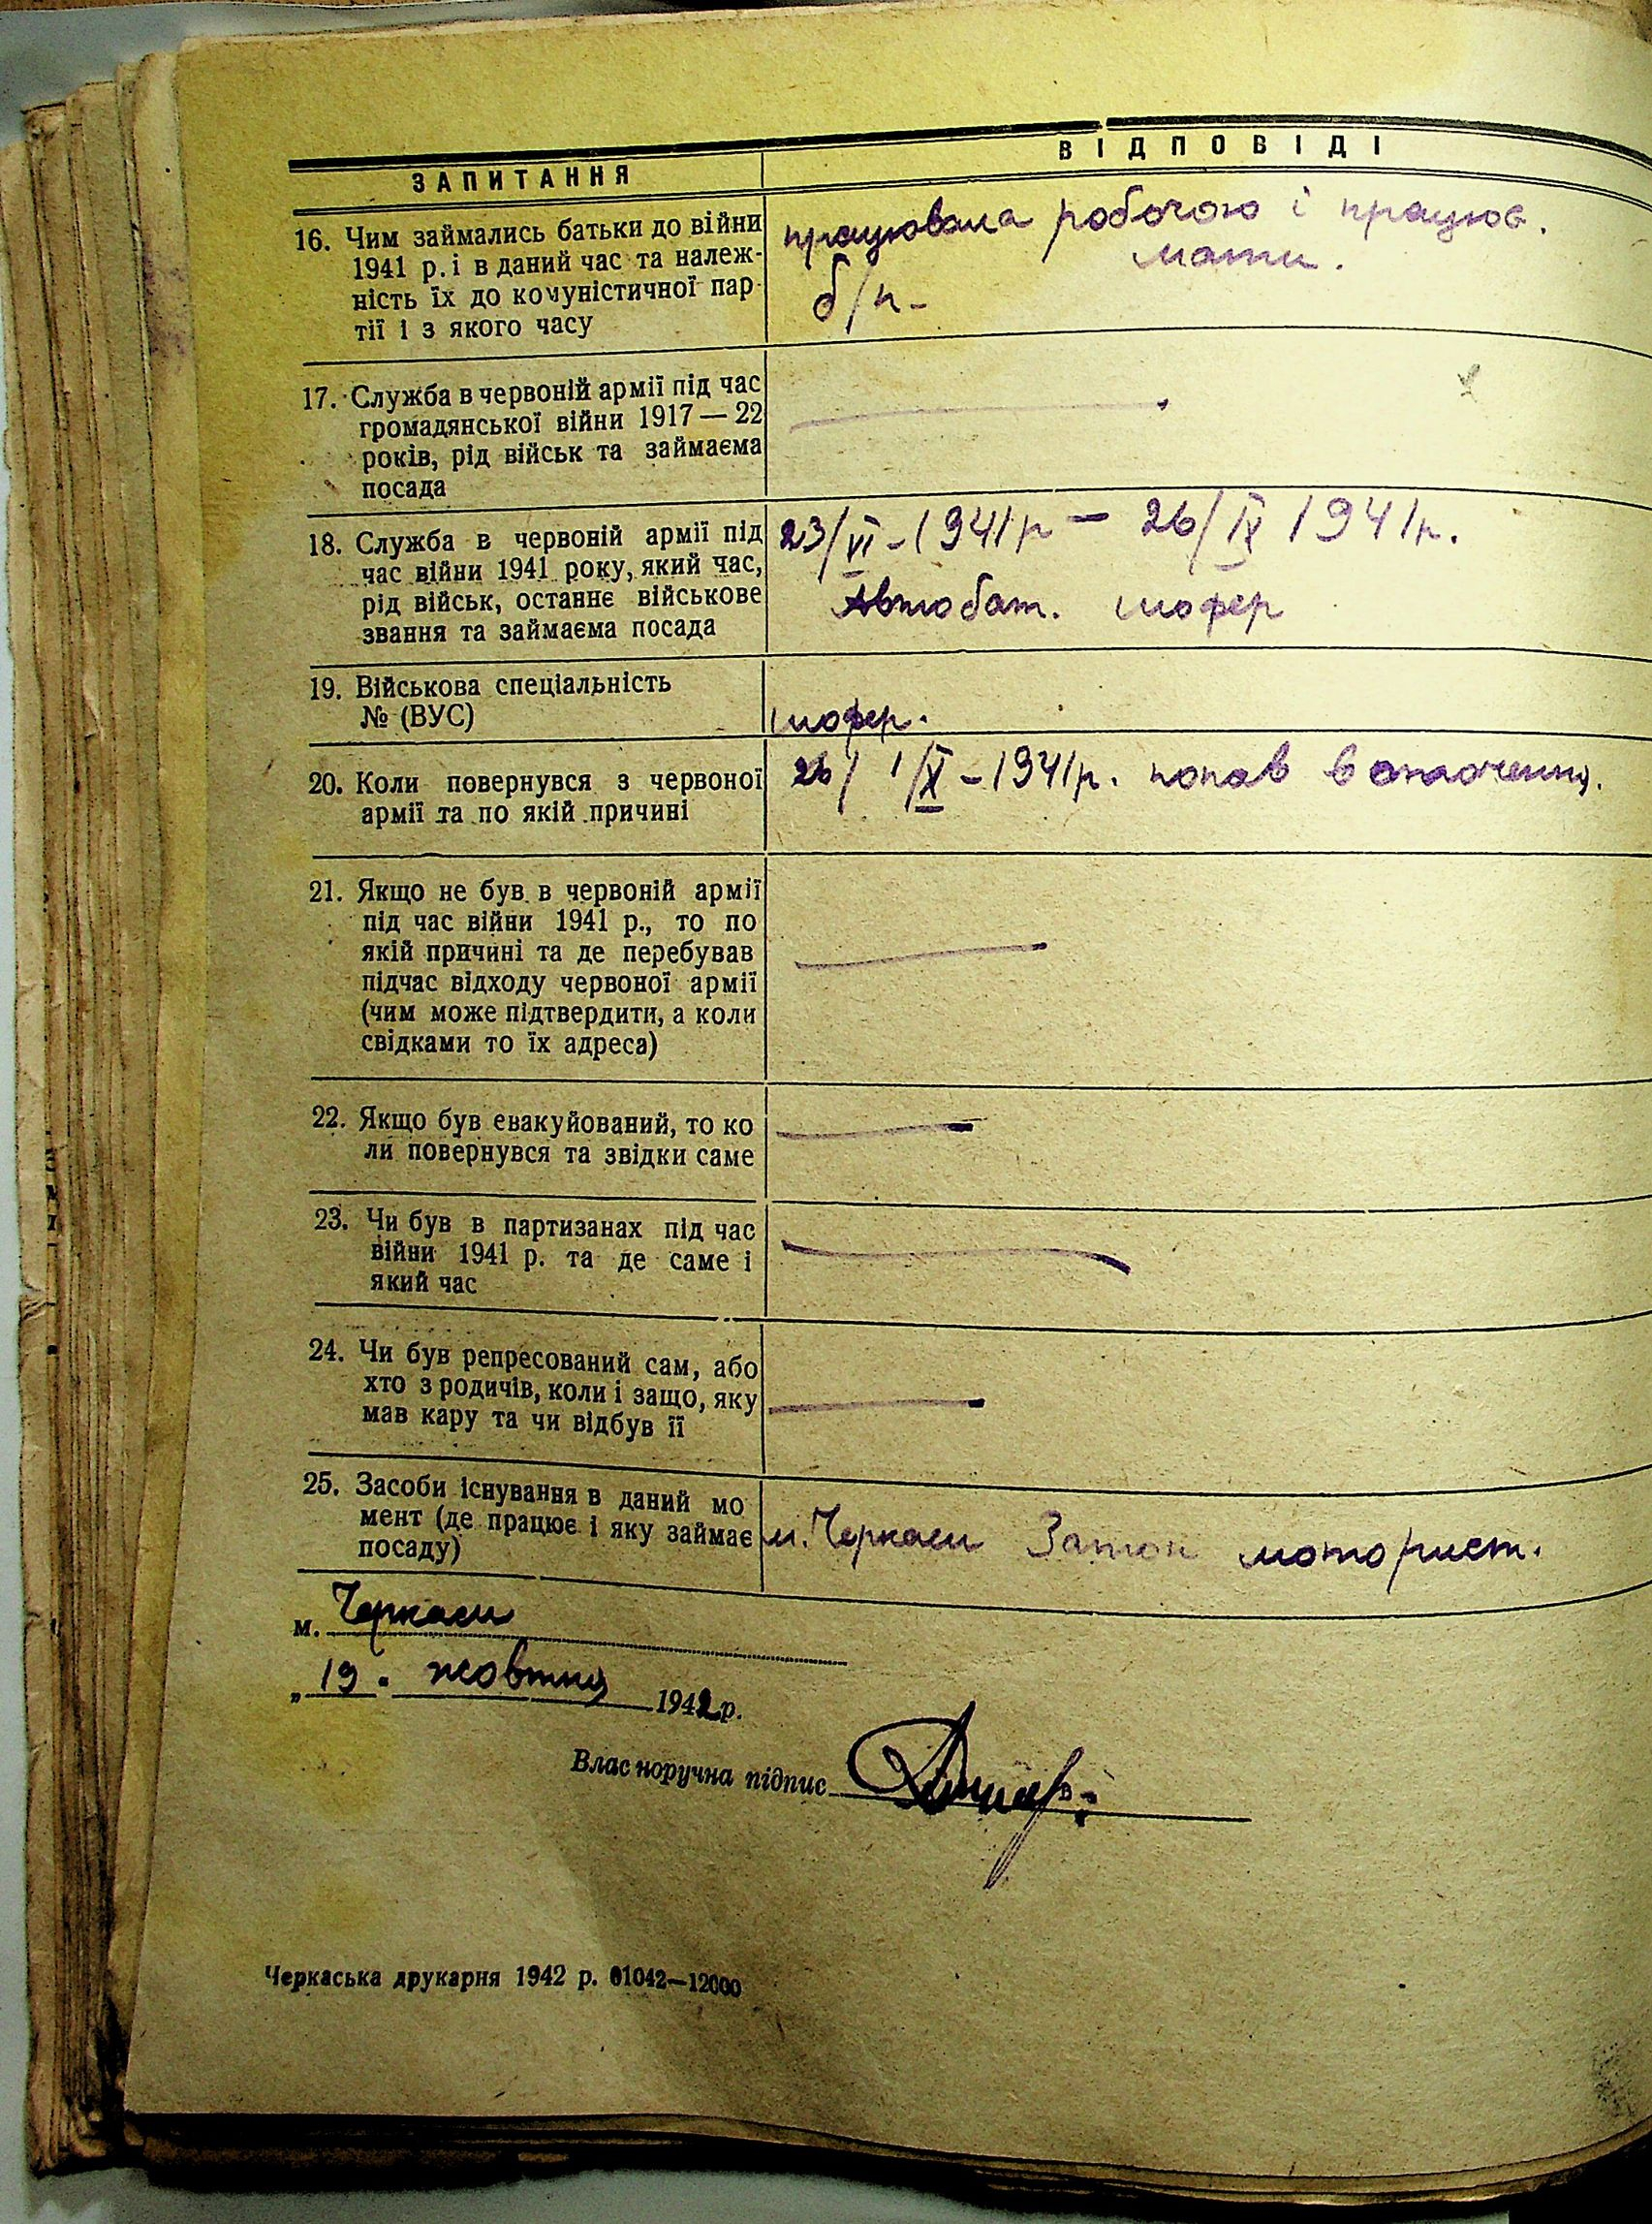 ЗАПИТАННЯ
ВІДПОВІДІ
16. Чим займались батьки до війни
1941 р. і в даний час та належ-
ність їх до комуністичної пар-
тії і з якого часу
працювала робочою і працює.
мати.
б/п-
17. Служба в червоній армії під час
громадянської війни 1917 — 22
років, рід військ та займаєма
посада
18. Служба в червоній армії під
час війни 1941 року, який час,
рід військ, останнє військове
звання та займаєма посада
23/VI-1941р — 26/IX 1941р.
Автобат. шофер
19. Військова спеціальність
№ (ВУС)
шофер.
20. Коли повернувся з червоної
армії та по якій причині
26/ 1/X-1941р. попав в оточення.
21. Якщо не був в червоній армії
під час війни 1941 р., то по
якій причині та де перебував
підчас відходу червоної армії
(чим може підтвердити, а коли
свідками то їх адреса)
22. Якщо був евакуйований, то ко
ли повернувся та звідки саме
23. Чи був в партизанах під час
війни 1941 р. та де саме і
який час
24. Чи був репресований сам, або
хто з родичів, коли і защо, яку
мав кару та чи відбув її
25. Засоби існування в даний мо
мент (де працює і яку займає
посаду)
м. Черкаси Затон моторист.
м. Черкаси
„19. жовтня 1942 р.
Власноручна підпис
Черкаська друкарня 1942 р. 01042—12000